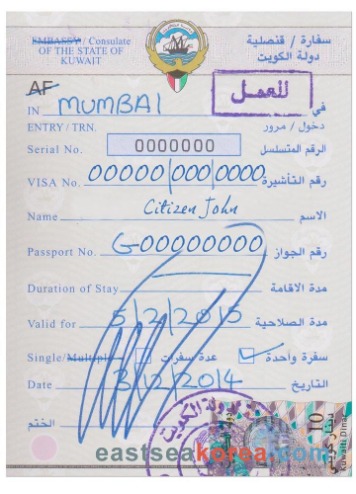 EMBASSY / Consulate سفارة / قنصلية
OF THE STATE OF دولة الكويت
KUWAIT
للعمل
AF
IN MUMBAI في
ENTRY / TRN. دخول / مرور
Serial No. 0000000 الرقم المتسلسل
VISA No. 00000/000/0000 رقم التأشيرة
Name Citizen John الاسم
Passport No. G00000000 رقم الجواز
Duration of Stay مدة الاقامة
Valid for 5/2/2015 مدة الصلاحية
Single/Multiple عدة سفرات سفرة واحدة
Date 3/12/2014 التاريخ
الختم
دولة الكويت
10
دينار كويتي
Kuwaiti Dinar
eastseakorea.com